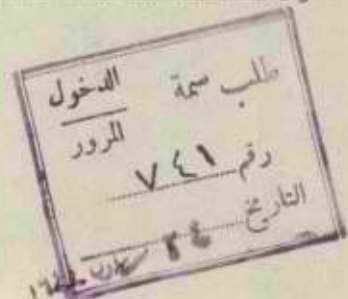 طلب سمة الدخول
المرور
رقم ٧٤١
التاريخ ٢٤